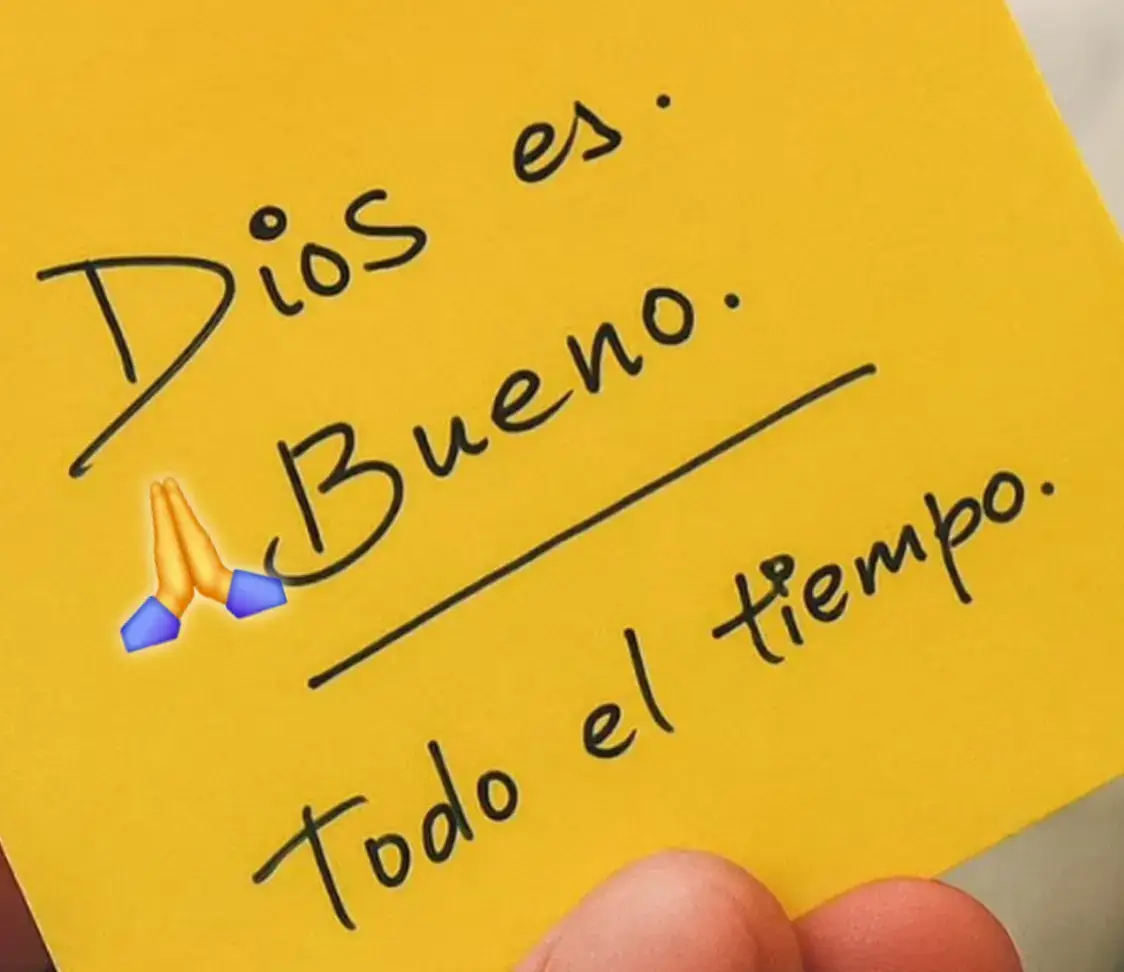 Dios es.
Bueno.
Todo el tiempo.